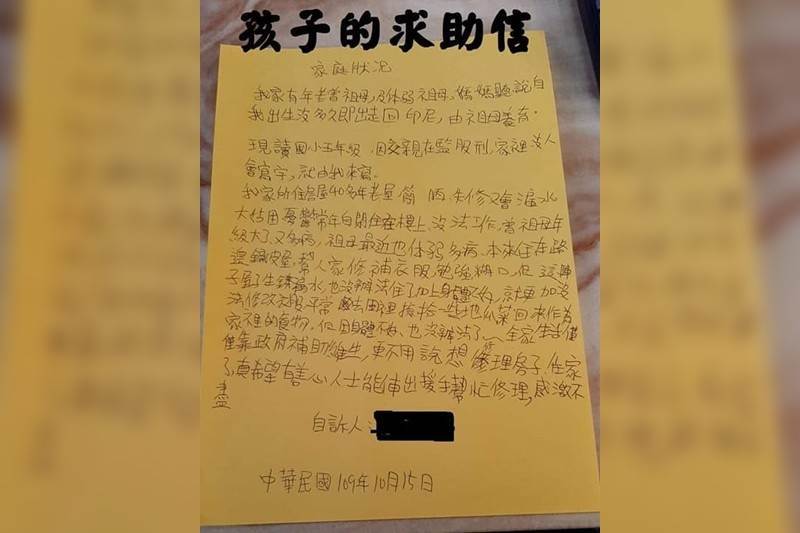 孩子的求助信
家庭狀況
我家有年老曾祖母,及体弱祖母,媽媽聽說自
我出生沒多久即出走回印尼,由祖母養育。
現讀国小五年級,因父親在監服刑,家裡沒人
會寫字,就由我來寫。
我家所住舊屋40多年老屋簡陋失修又會漏水
大姑因憂鬱常年自閉住在樓上,沒法工作,曾祖母年
級大了又多病,祖母最近也体弱多病,本來住在路
邊鐵皮屋,幫人家修補衣服勉強糊口,但這陣
子屋子生銹漏水,也沒辦法住了加上身體不好,就更加沒
法修改衣服平常去田裡撿拾一些地瓜菜回來作為
家裡的食物,但因身體不好,也沒辦法了。全家生活僅
僅靠政府補助維生,更不用說想修理房子住家
了,真希望有善心人士能伸出援手幫忙修理,感激不
盡
自訴人:
中華民國109年10月15日